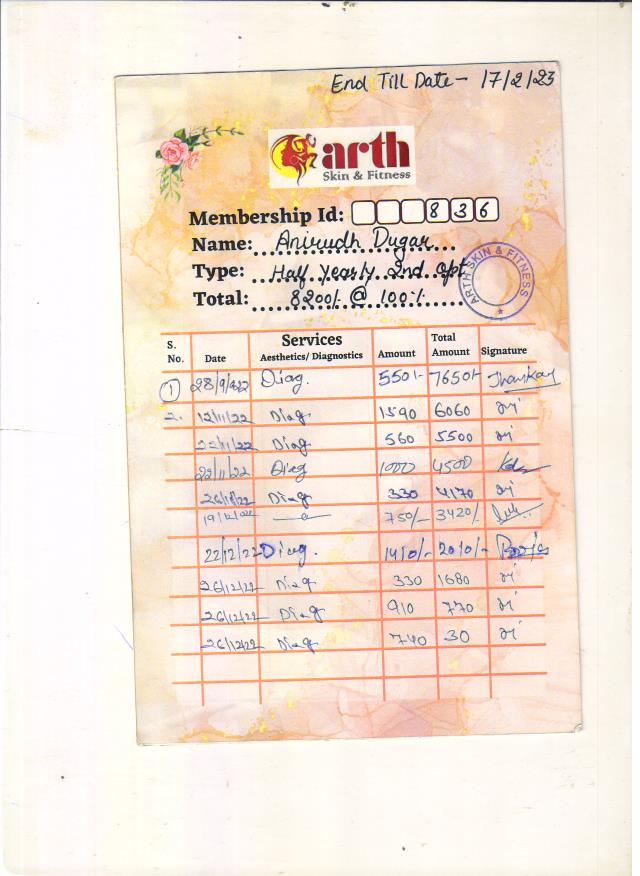 End Till Date - 17/2/23
arth
Skin & Fitness
Membership Id: 836
Name: Anirudh Dugar
Type: Half Yearly 2nd opt
Total: 8200/- @ 100%
ARTH SKIN & FITNESS
S. No. Date Services Aesthetics/ Diagnostics Amount Total Amount Signature
1 28/9/2022 Diag. 550/- 7650/-
2. 12/11/22 Diag 1590 6060 अं
22/11/22 Diag 560 5500 अं
22/11/22 Diag 1000 4500
Diag 330 4170 अं
19/12/2022 750/- 3420/-
22/12/22 Diag. 1410/- 2010/-
26/12/22 Diag 330 1680 अं
26/12/22 Diag 910 770 अं
26/12/22 Diag 740 30 अं